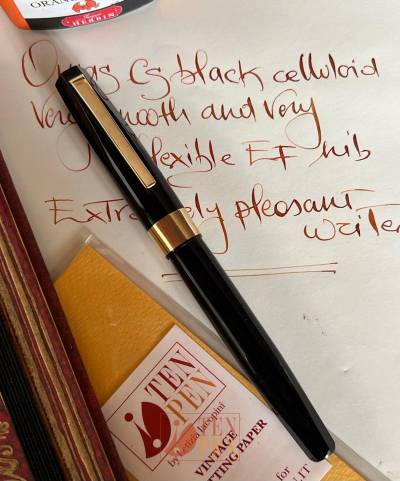 ORAN
HERBIN
Omas CS black celluloid
Very smooth and very
flexible EF nib
Extremely pleasant
writer
TEN
PEN
by Letizia Iacopini
VINTAGE
TTING PAPER
for
TEN
PEN